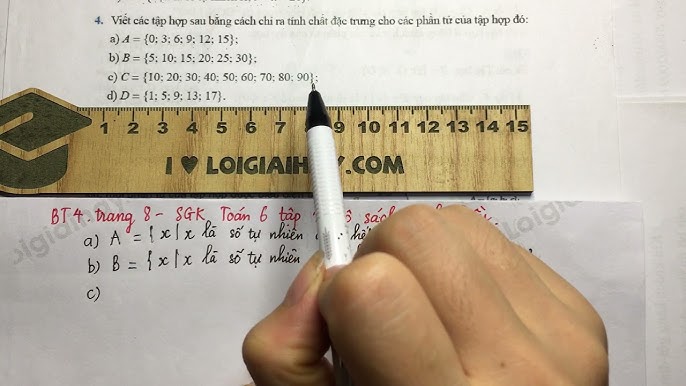 4. Viết các tập hợp sau bằng cách chỉ ra tính chất đặc trưng cho các phần tử của tập hợp đó:
a) A = {0; 3; 6; 9; 12; 15};
b) B = {5; 10; 15; 20; 25; 30};
c) C = {10; 20; 30; 40; 50; 60; 70; 80; 90};
d) D = {1; 5; 9; 13; 17}.
1 2 3 4 5 6 7 9 10 11 12 13 14 15
I ♥ LOIGIAIH Y.COM
BT4. trang 8 - SGK Toán 6 tập sách
a) A = { x | x là số tự nhiên
b) B = { x | x là số tự nhiên
c)